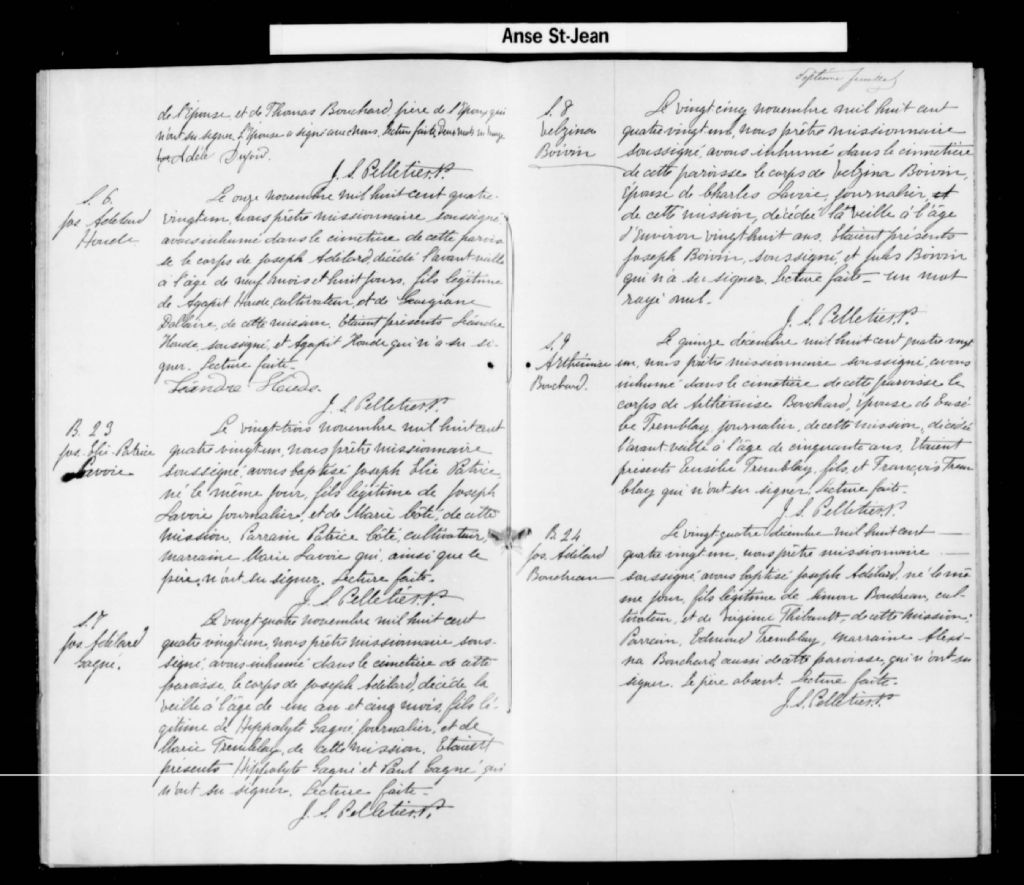 Anse St-Jean
de l'épouse, et de Thomas Bouchard, père de l'époux qui
n'ont su signer. L'épouse a signé avec nous. Lecture faite. Deux mots en marge
Adèle Dufour.
J. S. Pelletier, P.
S. 6.
Jos Adélard
Houde
Le onze novembre mil huit cent quatre-
vingt un, nous prêtre missionnaire soussigné
avons inhumé dans le cimetière de cette parois
se le corps de Joseph Adélard, décédé l'avant veille
à l'âge de neuf mois et huit jours, fils légitime
de Agapit Houde cultivateur, et de Georgiane
Dallaire, de cette mission. Etaient présents Léandre
Houde, soussigné, et Agapit Houde qui n'a su si-
gner. Lecture faite.
Léandre Houde
J. S. Pelletier, P.
B. 23
Jos. Elie Patrice
Lavoie
Le vingt trois novembre mil huit cent
quatre vingt un, nous prêtre missionnaire
soussigné, avons baptisé Joseph Elie Patrice,
né le même jour, fils légitime de Joseph
Lavoie journalier, et de Marie Côté, de cette
mission. Parrain Patrice Côté, cultivateur,
marraine Marie Lavoie qui, ainsi que le
père, n'ont su signer. Lecture faite.
J. S. Pelletier, P.
S. 7
Jos Adélard
Gagné.
Le vingt-quatre novembre mil huit cent
quatre vingt un, nous prêtre missionnaire sous-
signé, avons inhumé dans le cimetière de cette
paroisse, le corps de Joseph Adélard, décédé la
veille à l'âge de un an et cinq mois, fils lé-
gitime de Hippolyte Gagné, journalier, et de
Marie Tremblay, de cette mission. Etaient
présents Hippolyte Gagné et Paul Gagné qui
n'ont su signer. Lecture faite.
J. S. Pelletier, P.
Septième feuillet
S. 8
Velzina
Boivin
Le vingt cinq novembre mil huit cent
quatre vingt un, nous prêtre missionnaire
soussigné, avons inhumé dans le cimetière
de cette paroisse le corps de Velzina Boivin,
épouse de Charles Lavoie, journalier, et
de cette mission, décédée la veille à l'âge
d'environ vingt huit ans. Etaient présents
Joseph Boivin, soussigné, et Jules Boivin
qui n'a su signer. Lecture faite - un mot
rayé nul.
J. S. Pelletier, P.
S. 9
Arthémise
Bouchard.
Le quinze décembre mil huit cent quatre vingt
un, nous prêtre missionnaire soussigné, avons
inhumé dans le cimetière de cette paroisse le
corps de Arthémise Bouchard, épouse de Eusè
be Tremblay journalier, de cette mission, décédée
l'avant veille à l'âge de cinquante ans. Etaient
présents Eusèbe Tremblay, fils, et François Trem
blay qui n'ont su signer. Lecture faite.
J. S. Pelletier, P.
B. 24
Jos. Adélard
Boudreau
Le vingt quatre décembre mil huit cent
quatre vingt un, nous prêtre missionnaire
soussigné, avons baptisé Joseph Adélard, né le mê
me jour, fils légitime de Simon Boudreau, cul-
tivateur, et de Virginie Thibault, de cette mission:
Parrain, Edmond Tremblay, marraine Alexi-
na Bouchard, aussi de cette paroisse, qui n'ont su
signer. Le père absent. Lecture faite.
J. S. Pelletier, P.